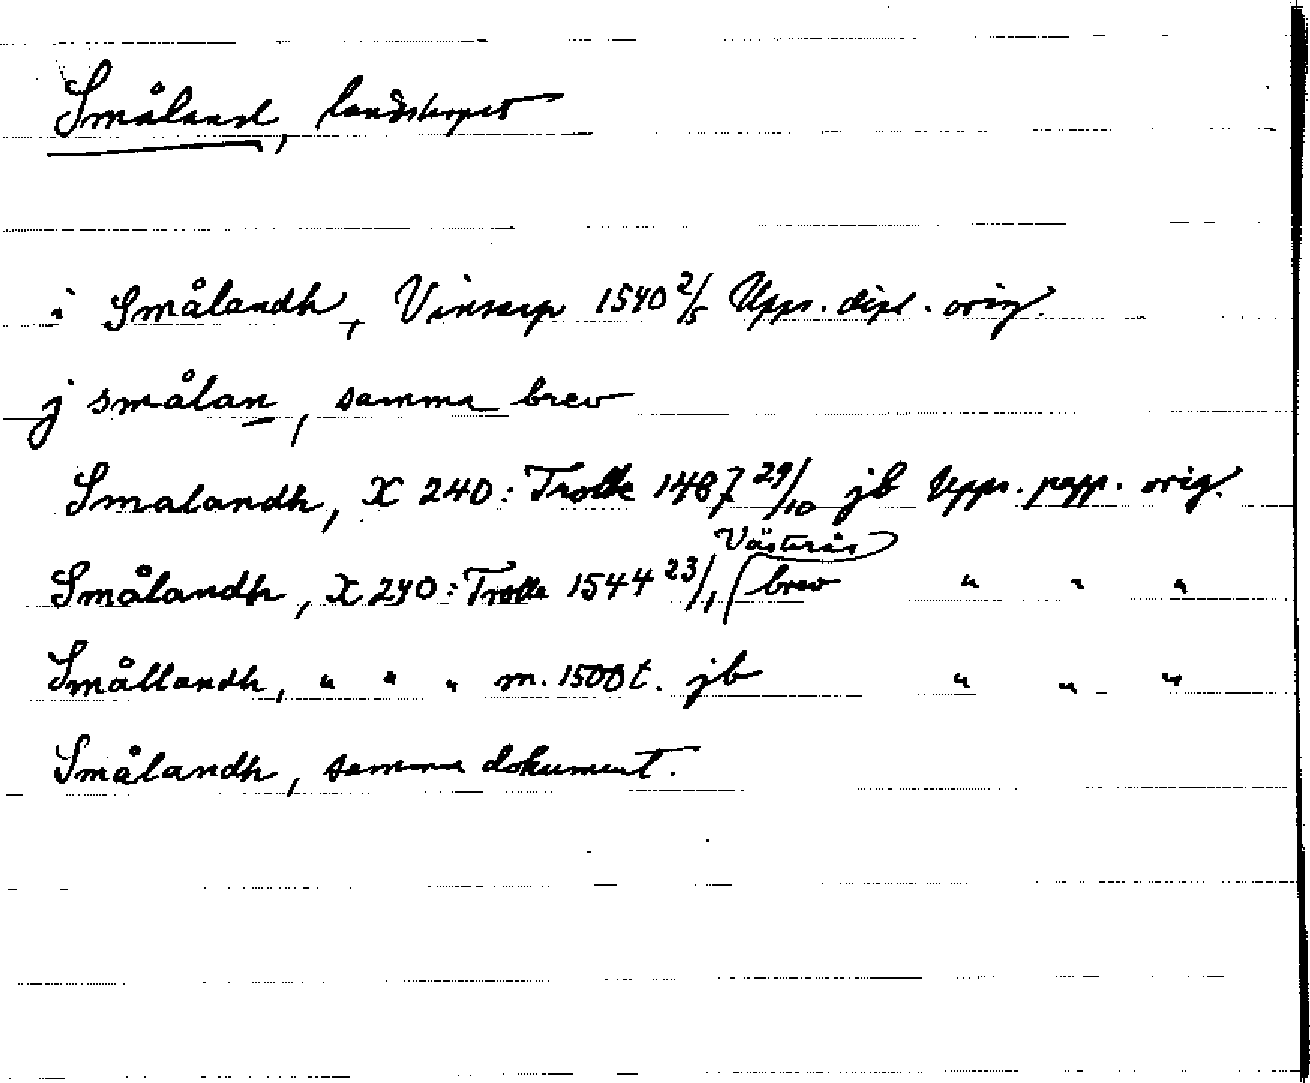 Småland, landskapet
i Smålandh, Vinsarp 1540 2/5 Upps. dipl. orig.
j smålan, samma brev
Smalandh, X 240: Trolle 1487 29/10 jb Upps. papp. orig.
Smålandh, X 240: Trolle 1544 23/1 Västerås brev " " "
Smållandh, " " " m. 1500 t. jb " " "
Smålandh, samma dokument.